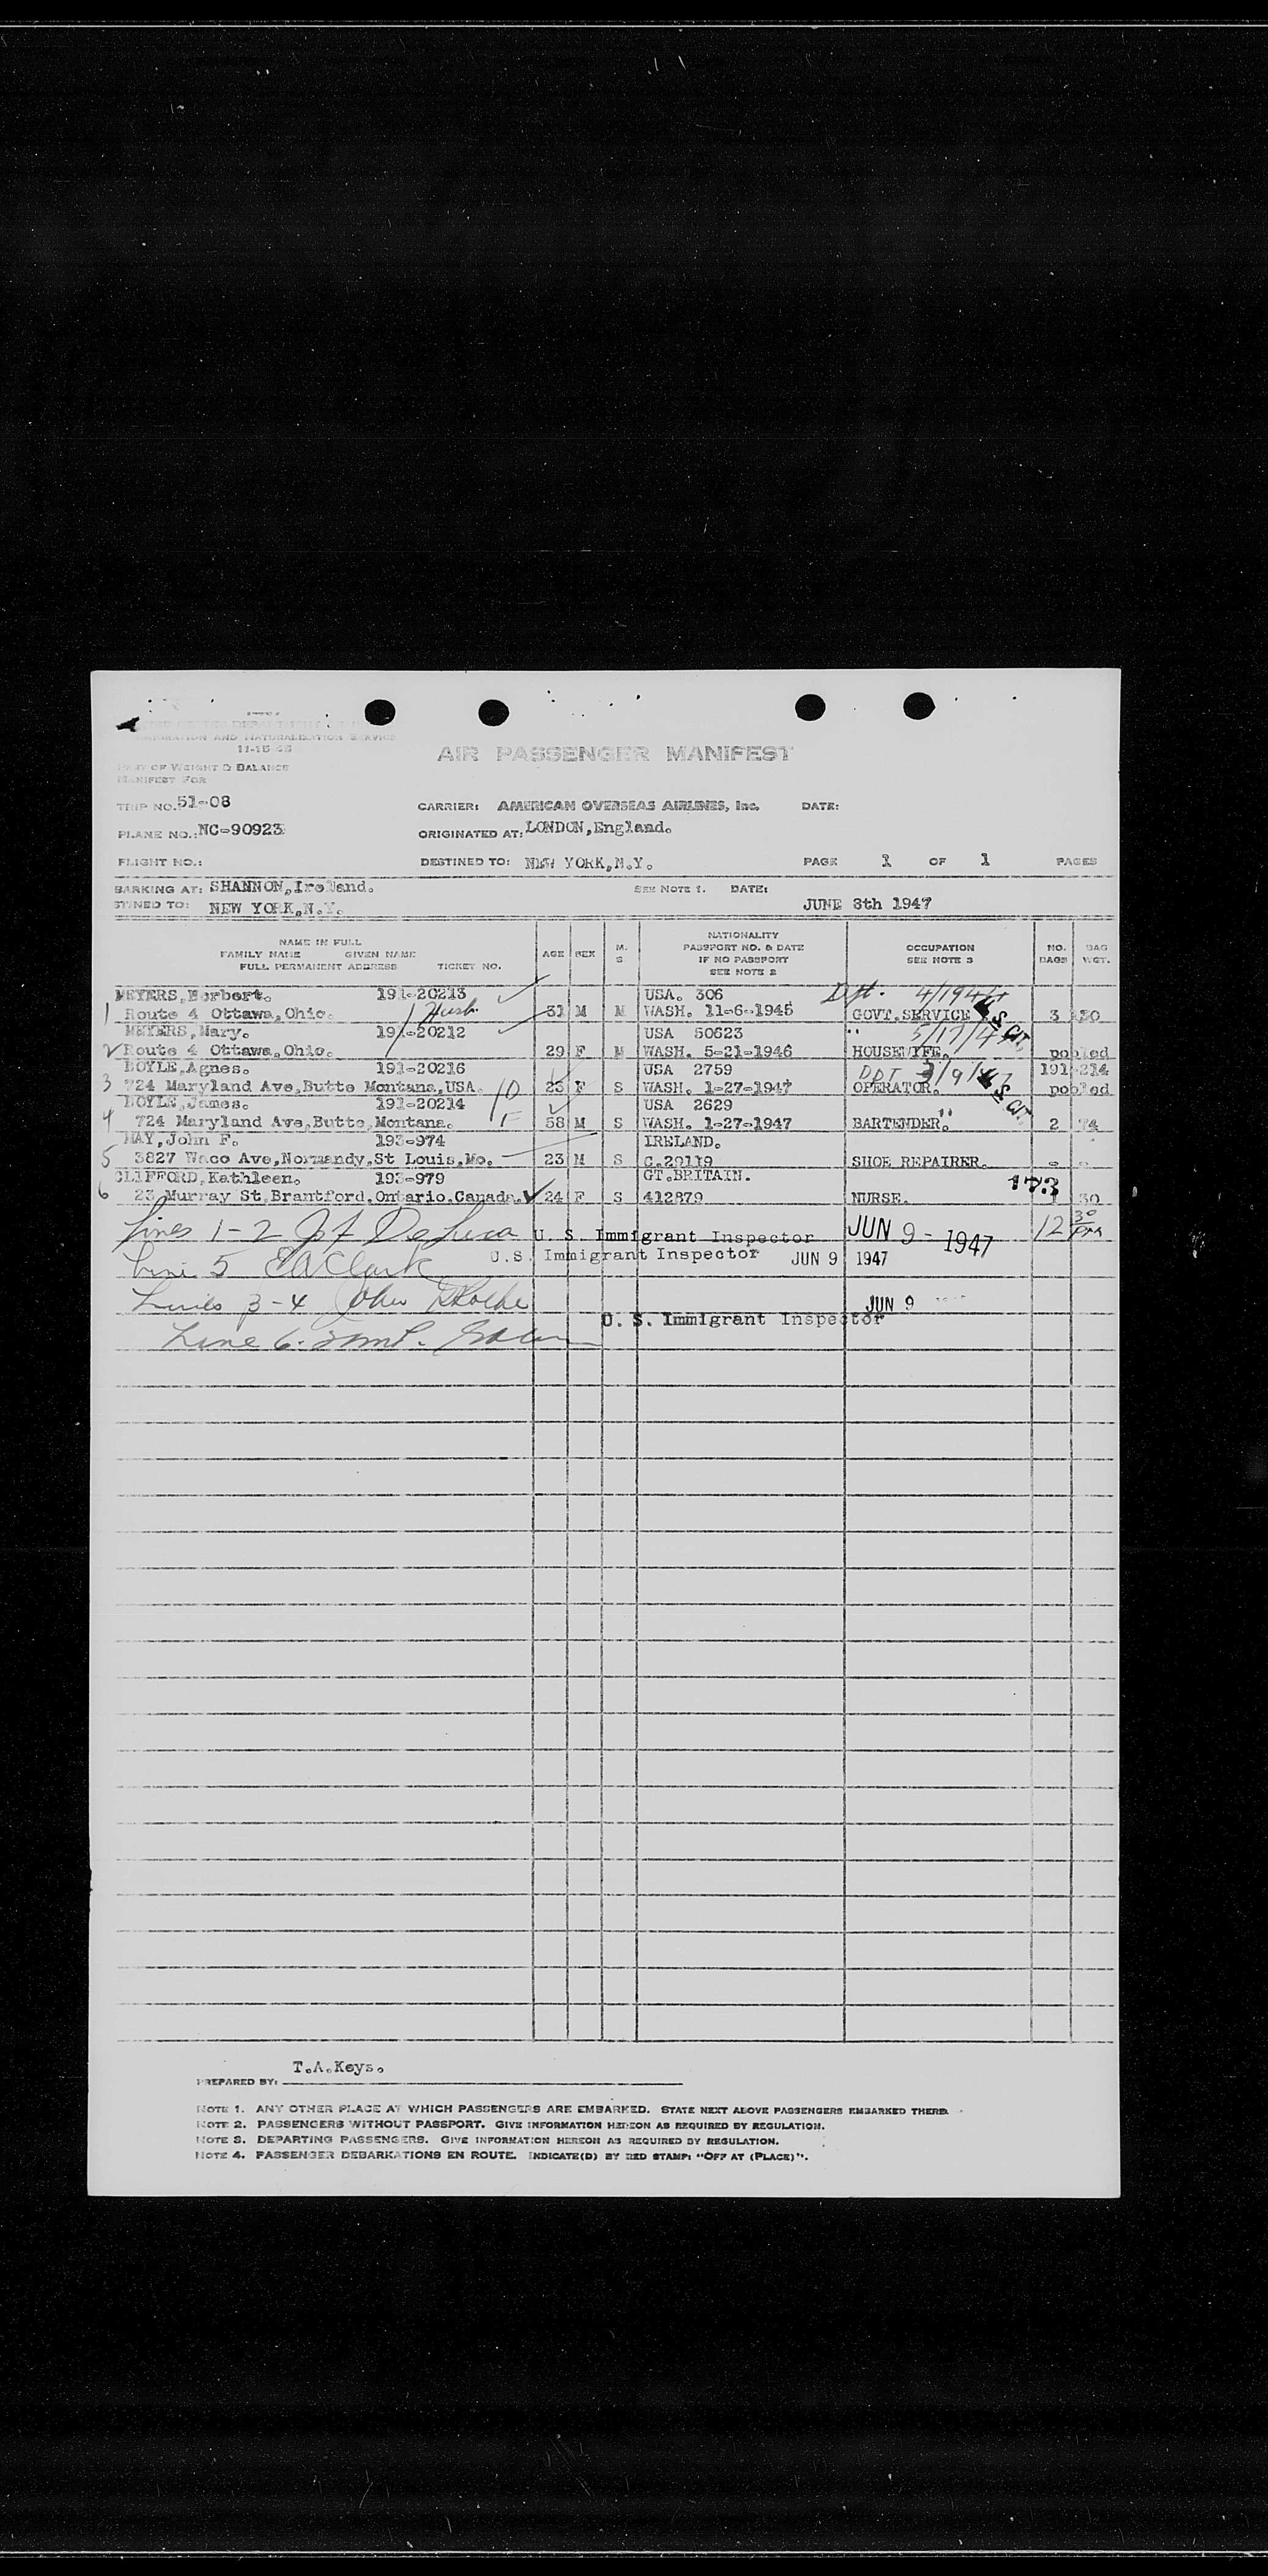 IMMIGRATION AND NATURALIZATION SERVICE
11-15-45
PART OF WEIGHT & BALANCE
MANIFEST FOR
AIR PASSENGER MANIFEST
TRIP NO. 51-08
CARRIER: AMERICAN OVERSEAS AIRLINES, Inc. DATE:
PLANE NO.: NC-90923
ORIGINATED AT: LONDON,England.
FLIGHT NO.:
DESTINED TO: NEW YORK,N.Y. PAGE 1 OF 1 PAGES
BARKING AT: SHANNON,Ireland. SEE NOTE 1. DATE:
STINED TO: NEW YORK,N.Y. JUNE 8th 1947
NAME IN FULL
FAMILY NAME GIVEN NAME
FULL PERMANENT ADDRESS TICKET NO.
AGE SEX M. S
NATIONALITY
PASSPORT NO. & DATE
IF NO PASSPORT
SEE NOTE 2
OCCUPATION
SEE NOTE 3
NO. BAGS
BAG WGT.
MEYERS,Herbert. 191-20213 USA. 306 4/19
1 Route 4 Ottawa,Ohio. Husb. 31 M M WASH. 11-6-1945 GOVT.SERVICE 3 130
MEYERS,Mary. 191-20212 USA 50623 " 5/17/4
2 Route 4 Ottawa,Ohio. 29 F M WASH. 5-21-1946 HOUSEWIFE. pooled
DOYLE,Agnes. 191-20216 USA 2759 191-214
3 724 Maryland Ave,Butte Montana,USA. 23 F S WASH. 1-27-1947 OPERATOR. pooled
DOYLE,James. 191-20214 USA 2629
4 724 Maryland Ave,Butte,Montana. 58 M S WASH. 1-27-1947 BARTENDER. " 2 74
HAY,John F. 193-974 IRELAND.
5 3827 Waco Ave,Normandy,St Louis.Mo. 23 M S C.29119 SHOE REPAIRER. - -
CLIFFORD,Kathleen. 193-979 GT.BRITAIN.
6 23 Murray St,Brantford,Ontario.Canada. 24 F S 412879 NURSE. 1 30
173
Lines 1-2 U. S. Immigrant Inspector JUN 9 - 1947 12 30 pm
Line 5 EA Clark U.S. Immigrant Inspector JUN 9 1947
Lines 3-4 John JUN 9
U. S. Immigrant Inspector
Line 6.
T.A.Keys.
PREPARED BY:
NOTE 1. ANY OTHER PLACE AT WHICH PASSENGERS ARE EMBARKED. STATE NEXT ABOVE PASSENGERS EMBARKED THERE.
NOTE 2. PASSENGERS WITHOUT PASSPORT. GIVE INFORMATION HEREON AS REQUIRED BY REGULATION.
NOTE 3. DEPARTING PASSENGERS. GIVE INFORMATION HEREON AS REQUIRED BY REGULATION.
NOTE 4. PASSENGER DEBARKATIONS EN ROUTE. INDICATE(D) BY RED STAMP: "OFF AT (PLACE)".